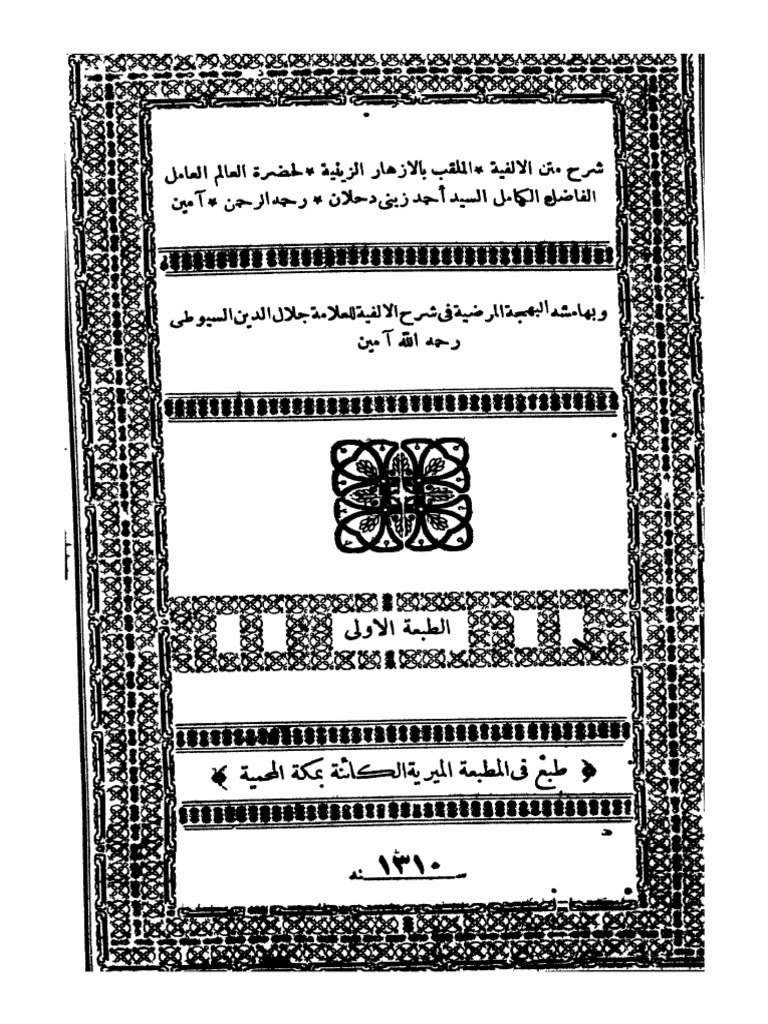 شرح متن الالفية * الملقب بالازهار الزينية * لحضرة العالم العامل
الفاضل الكامل السيد أحمد زينى دحلان * رحمه الرحمن * آمين
وبهامشه البهجة المرضية فى شرح الالفية للعلامة جلال الدين السيوطى
رحمه الله آمين
الطبعة الاولى
﴿ طبع فى المطبعة الميرية الكائنة بمكة المحمية ﴾
سنه ١٣١٠